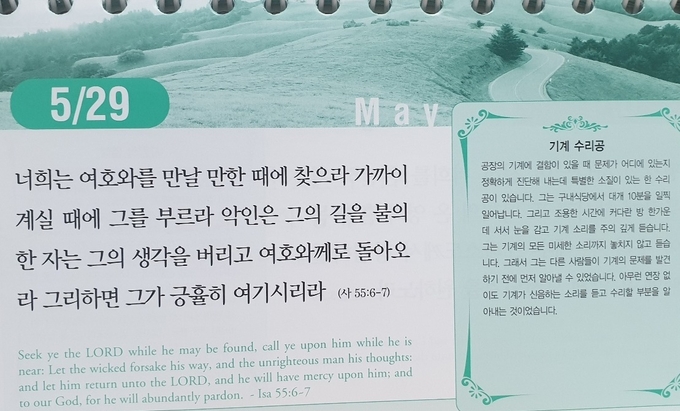 5/29
May
너희는 여호와를 만날 만한 때에 찾으라 가까이
계실 때에 그를 부르라 악인은 그의 길을 불의
한 자는 그의 생각을 버리고 여호와께로 돌아오
라 그리하면 그가 긍휼히 여기시리라 (사 55:6-7)
Seek ye the LORD while he may be found, call ye upon him while he is
near: Let the wicked forsake his way, and the unrighteous man his thoughts:
and let him return unto the LORD, and he will have mercy upon him; and
to our God, for he will abundantly pardon. - Isa 55:6-7
기계 수리공
공장의 기계에 결함이 있을 때 문제가 어디에 있는지
정확하게 진단해 내는데 특별한 소질이 있는 한 수리
공이 있습니다. 그는 구내식당에서 대개 10분을 일찍
일어납니다. 그리고 조용한 시간에 커다란 방 한가운
데 서서 눈을 감고 기계 소리를 주의 깊게 듣습니다.
그는 기계의 모든 미세한 소리까지 놓치지 않고 듣습
니다. 그래서 그는 다른 사람들이 기계의 문제를 발견
하기 전에 먼저 알아낼 수 있었습니다. 아무런 연장 없
이도 기계가 신음하는 소리를 듣고 수리할 부분을 알
아내는 것이었습니다.